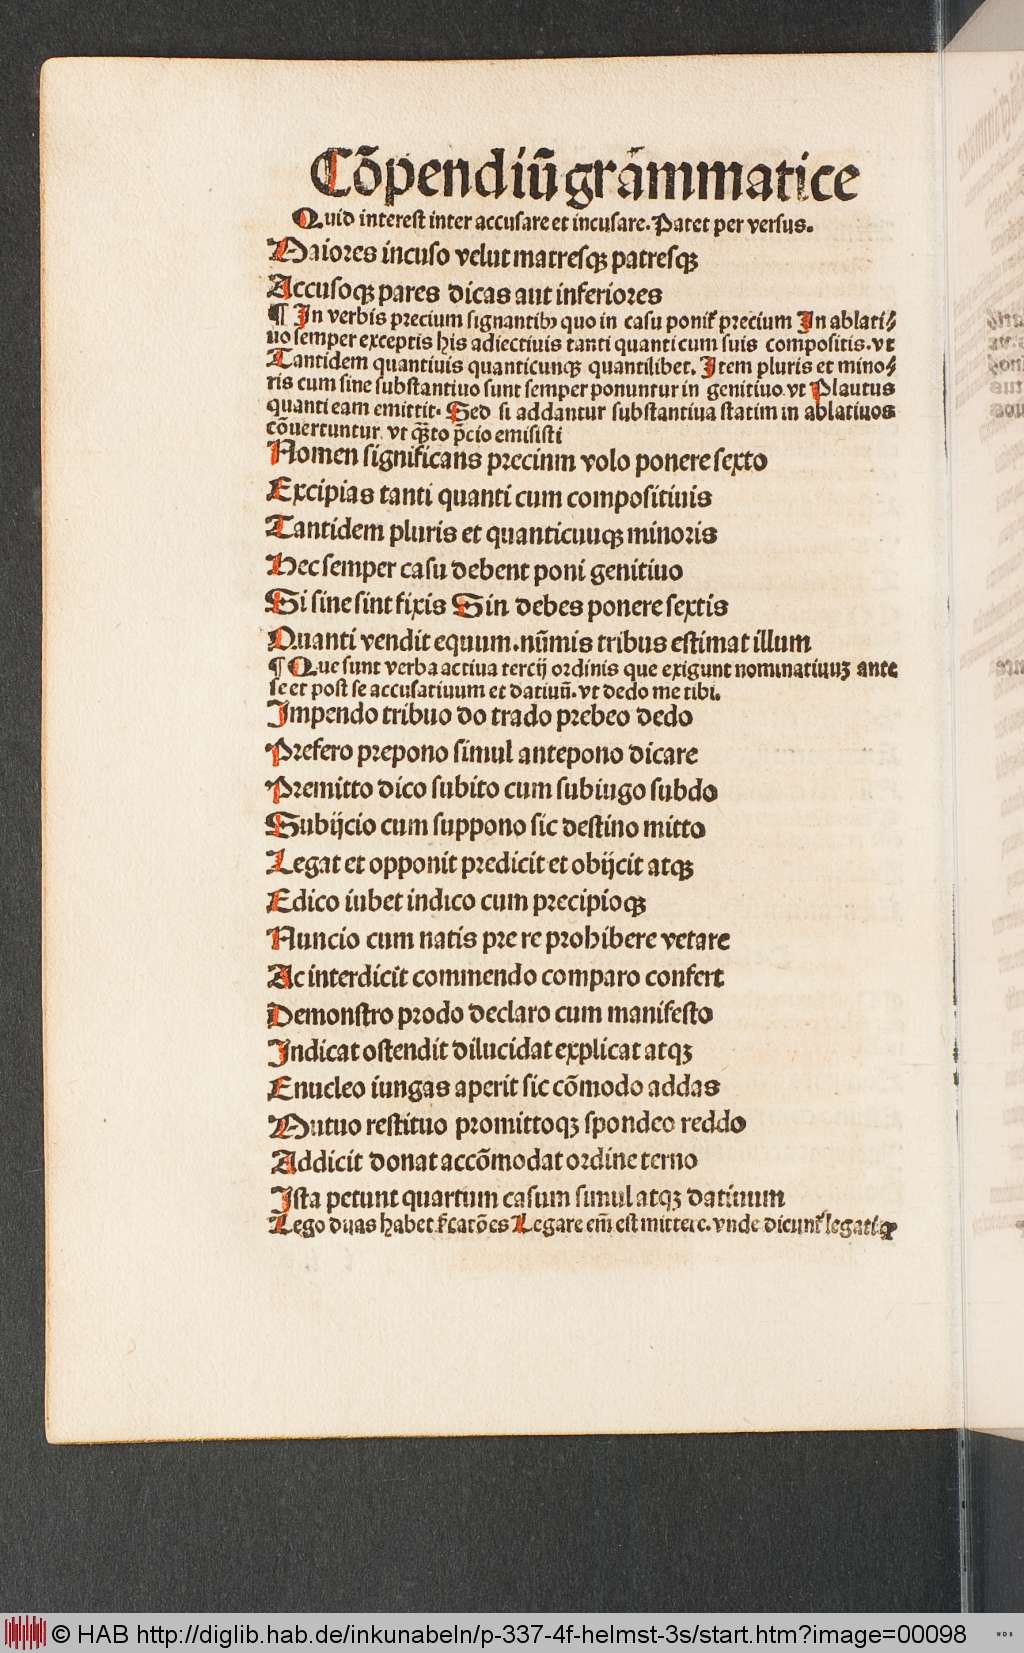 Cōpendiū grāmmatice
Quid interest inter accusare et incusare. Patet per versus.
Maiores incuso velut matresqꝫ patresqꝫ
Accusoqꝫ pares dicas aut inferiores
¶ In verbis precium signantibꝰ quo in casu ponit᷑ precium In ablati⸗
uo semper exceptis his adiectiuis tanti quanti cum suis compositis. vt
Tantidem quantiuis quanticunqꝫ quantilibet. Item pluris et mino⸗
ris cum sine substantiuo sunt semper ponuntur in genitiuo vt Plautus
quanti eam emittit. Sed si addantur substantiua statim in ablatiuos
cōuertuntur. vt qꝫto p̄cio emisisti
Nomen significans precinm volo ponere sexto
Excipias tanti quanti cum compositiuis
Tantidem pluris et quanticuuqꝫ minoris
Hec semper casu debent poni genitiuo
Si sine sint fixis Sin debes ponere sextis
Quanti vendit equum. nūmis tribus estimat illum
¶ Que sunt verba actiua tercij ordinis que exigunt nominatiuuꝫ ante
se et post se accusatiuum et datiuū. vt dedo me tibi.
Impendo tribuo do trado prebeo dedo
Prefero prepono simul antepono dicare
Premitto dico subito cum subiugo subdo
Subijcio cum suppono sic destino mitto
Legat et opponit predicit et obijcit atqꝫ
Edico iubet indico cum precipioqꝫ
Nuncio cum natis pre re prohibere vetare
Ac interdicit commendo comparo confert
Demonstro prodo declaro cum manifesto
Indicat ostendit dilucidat explicat atqꝫ
Enucleo iungas aperit sic cōmodo addas
Mutuo restituo promittoqꝫ spondeo reddo
Addicit donat accōmodat ordine terno
Ista petunt quartum casum simul atqꝫ datiuum
Lego duas habet s̄catōes Legare em̄ est mittere. vnde dicunt᷑ legati qꝫ
© HAB http://diglib.hab.de/inkunabeln/p-337-4f-helmst-3s/start.htm?image=00098